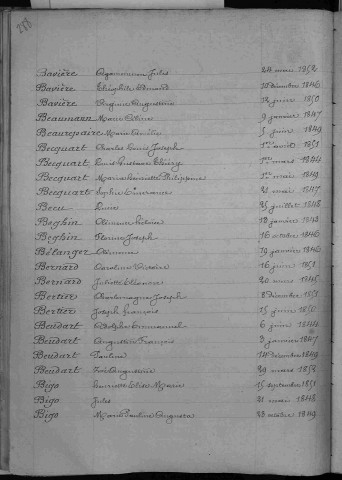 Bavière Agamemnon Jules 24 mai 1852
Bavière Théophile Edouard 10 décembre 1846
Bavière Virginie Augustine 12 juin 1850
Beaumann Marie Céline 9 janvier 1847
Beaurepaire Marie Amélie 5 juin 1849
Becquart Charles Louis Joseph 1er août 1851
Becquart Louis Gustave Thierry 1er mars 1844
Becquart Marie Henriette Philippine 1er mai 1849
Becquart Sophie 21 mai 1847
Becu Louis 25 juillet 1848
Beghin 18 janvier 1843
Beghin Florine Joseph 16 octobre 1846
Bélanger 19 janvier 1846
Bernard Caroline Victoire 16 juin 1851
Bernard Juliette Eléonore 20 mars 1845
Bertier Charlemagne Joseph 8 décembre 1851
Bertier Joseph François 15 juin 1850
Beudart Adolphe Emmanuel 6 juin 1844
Beudart Augustin François 3 janvier 1847
Beudart Pauline 14 décembre 1849
Beudart Zoé Augustine 29 mars 1852
Bigo Henriette Elise Marie 15 septembre 1851
Bigo Jules 21 mai 1848
Bigo Marie Pauline Augusta 23 octobre 1849